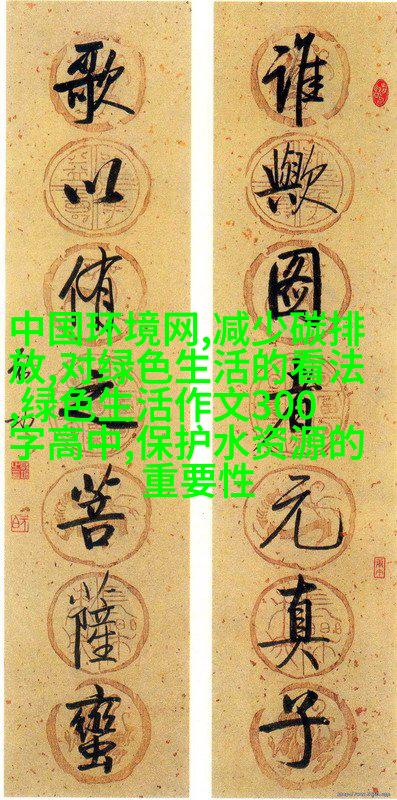 谁歟图元真子
歌以侑之菩薩蠻
中国环境网,减少碳排
放,对绿色生活的看法
,绿色生活作文300
字高中,保护水资源的
重要性